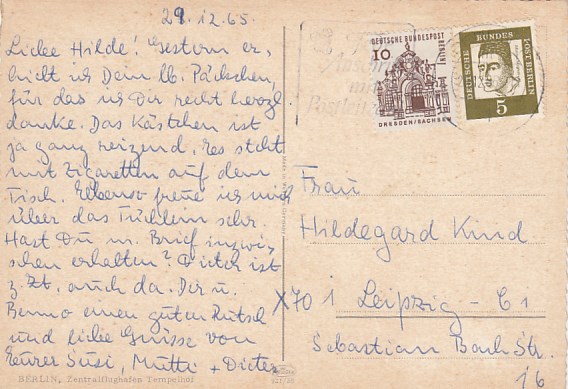 29.12.65
Liebe Hilde! Gestern er,
hielt ich Dein lb. Päckchen,
für das ich Dir recht herzl
danke. Das Kästchen ist
ja ganz reizend. Es steht
mit Zigaretten auf dem
Tisch. Ebenso freue ich mich
über das Tüchlein sehr.
Hast Du m. Brief inzwi,
schen erhalten? Dieter ist
z. Zt. auch da. Dir u.
Benno einen guten Rutsch
und liebe Grüsse von
Eurer Susi, Mutti + Dieter
BERLIN, Zentralflughafen Tempelhof
10 DEUTSCHE BUNDESPOST
BERLIN
DRESDEN/SACHSEN
DEUTSCHE BUNDES
POST BERLIN
5
Frau
Hildegard Kind
X 70 1 Leipzig - C1
Sebastian Bach Str.
16